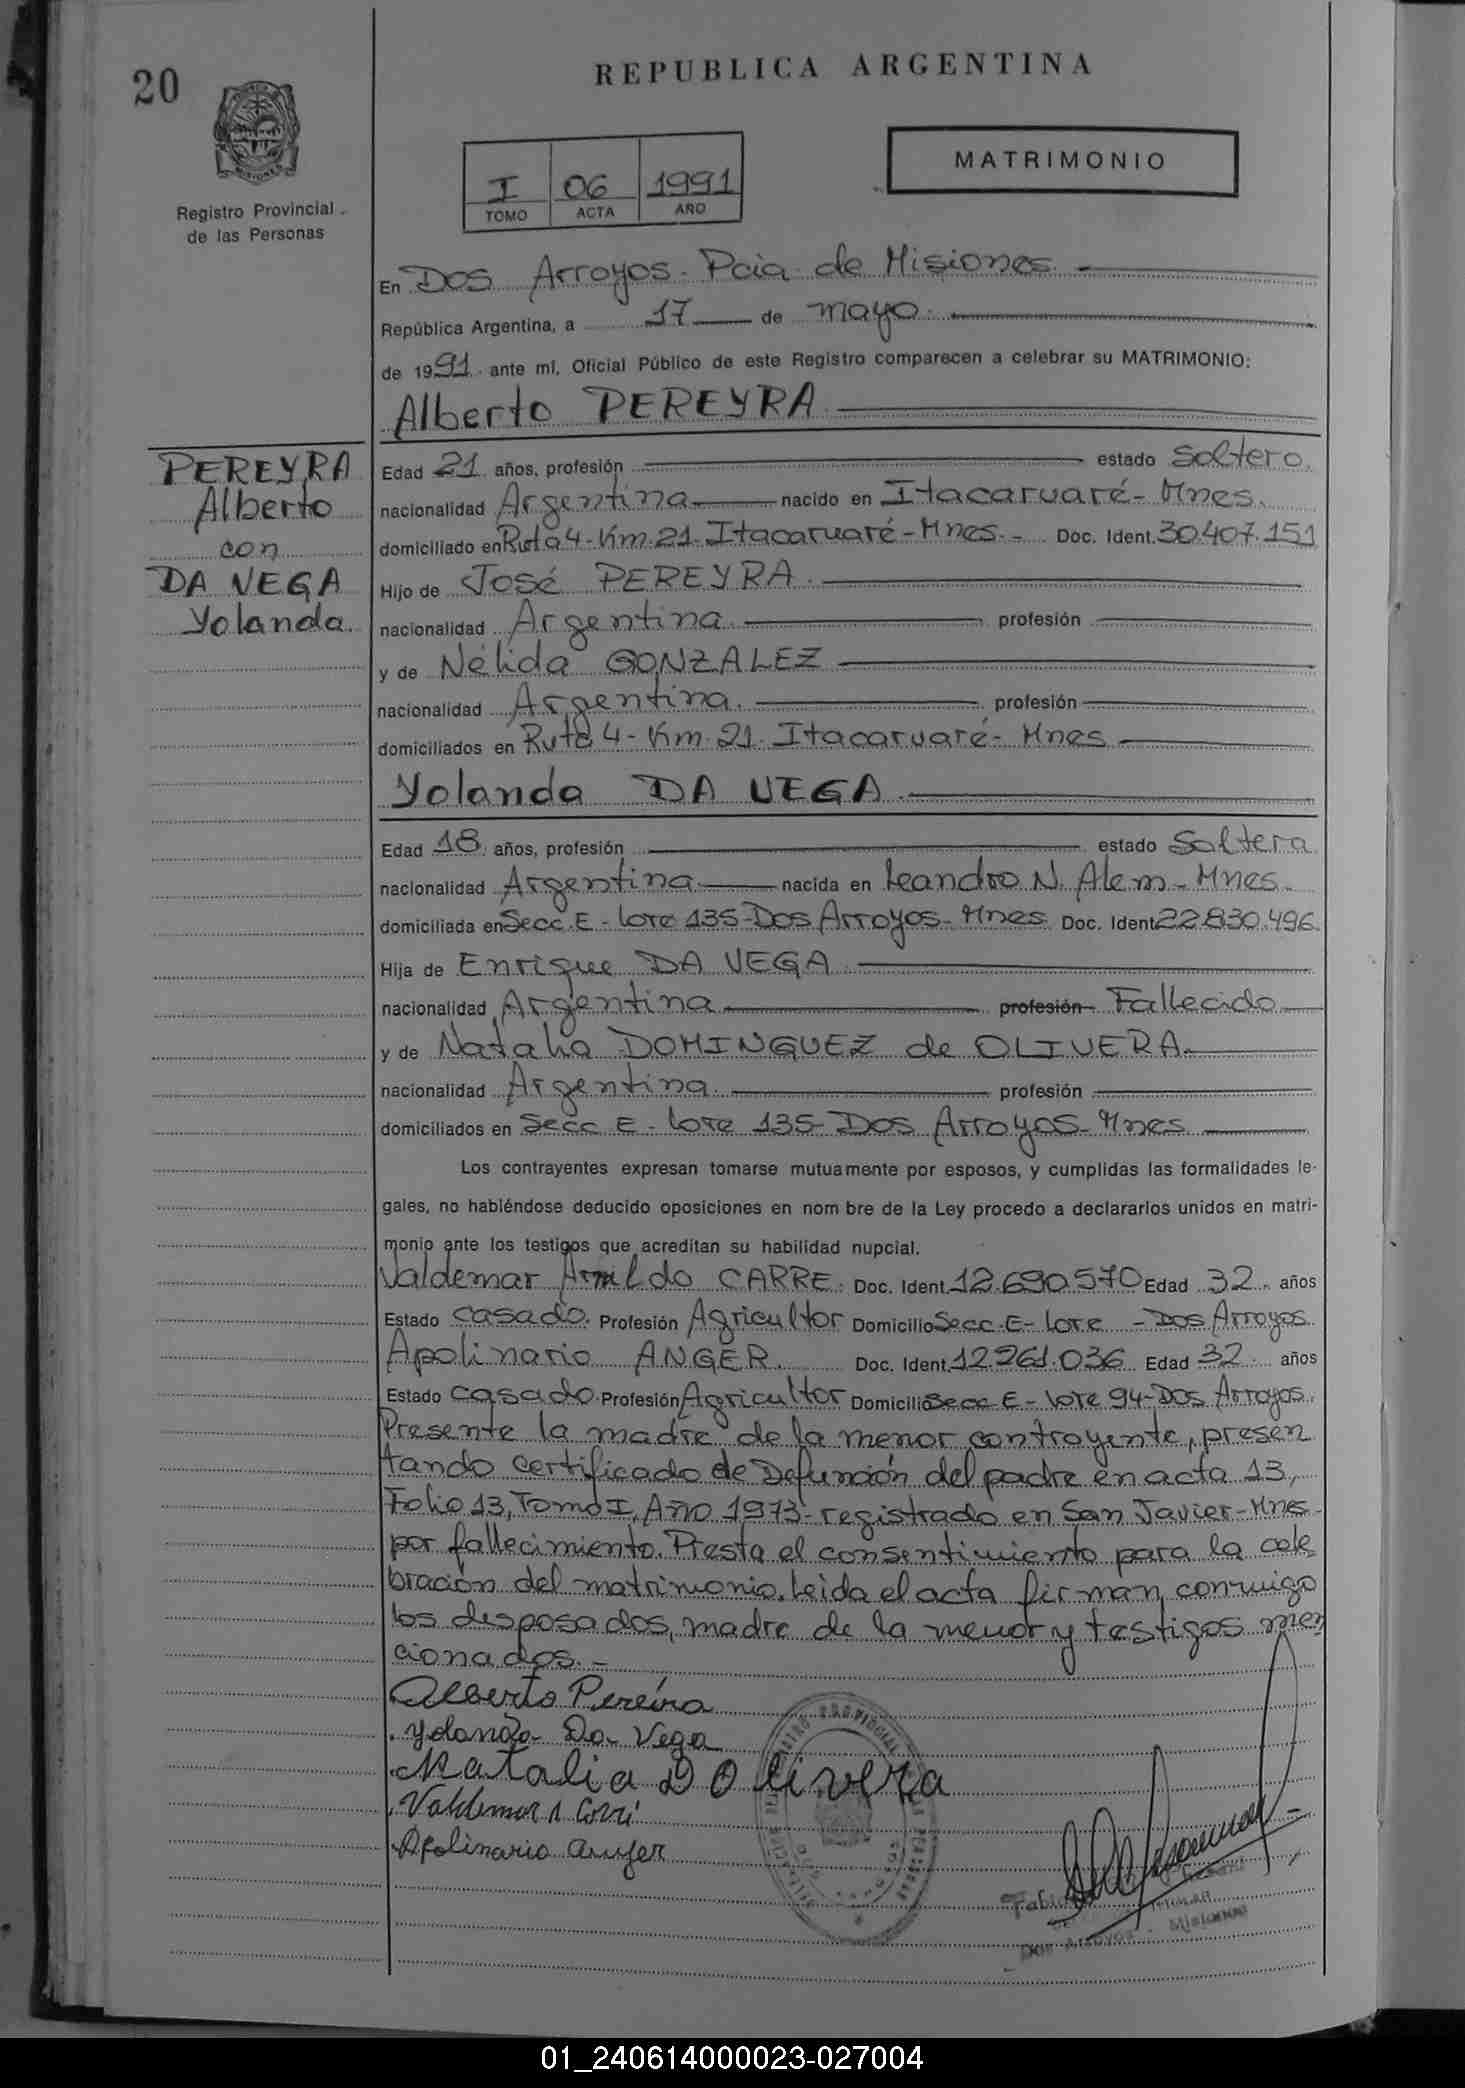 20
REPUBLICA ARGENTINA
MATRIMONIO
I 06 1991
TOMO ACTA AÑO
Registro Provincial
de las Personas
En Dos Arroyos. Pcia. de Misiones.
República Argentina, a 17 de mayo.
de 1991. ante mí, Oficial Público de este Registro comparecen a celebrar su MATRIMONIO:
Alberto PEREYRA
PEREYRA
Alberto
con
DA VEGA
Yolanda.
Edad 21 años, profesión estado Soltero.
nacionalidad Argentina nacido en Itacaruaré - Mnes.
domiciliado en Ruta 4 - Km. 21 - Itacaruaré - Mnes. - Doc. Ident. 30.407.151
Hijo de José PEREYRA.
nacionalidad Argentina. profesión
y de Nélida GONZALEZ
nacionalidad Argentina. profesión
domiciliados en Ruta 4 - Km. 21. Itacaruaré - Mnes
Yolanda DA VEGA.
Edad 18. años, profesión estado Soltera.
nacionalidad Argentina nacida en Leandro N. Alem - Mnes.
domiciliada en Secc. E - Lote 135 - Dos Arroyos - Mnes. Doc. Ident. 22.830.496.
Hija de Enrique DA VEGA.
nacionalidad Argentina profesión Fallecido
y de Natalia DOMINGUEZ de OLIVERA.
nacionalidad Argentina. profesión
domiciliados en Secc E - Lote 135 - Dos Arroyos - Mnes
Los contrayentes expresan tomarse mutuamente por esposos, y cumplidas las formalidades le-
gales, no habiéndose deducido oposiciones en nom bre de la Ley procedo a declararlos unidos en matri-
monio ante los testigos que acreditan su habilidad nupcial.
Valdemar Arnildo CARRE. Doc. Ident. 12.690.570 Edad 32. años
Estado casado. Profesión Agricultor Domicilio Secc. E - Lote - Dos Arroyos.
Apolinario ANGER. Doc. Ident. 12.961.036 Edad 32. años
Estado casado. Profesión Agricultor Domicilio Secc E - Lote 94 - Dos Arroyos.
Presente la madre de la menor contrayente, presen
tando certificado de Defunción del padre en acta 13,
Folio 13, Tomo I, Año 1973 - registrado en San Javier - Mnes -
por fallecimiento. Presta el consentimiento para la cele
bración del matrimonio. Leida el acta firman conmigo
los desposados, madre de la menor y testigos men
cionados. -
Alberto Pereira
Yolanda Da Vega
Natalia D Olivera
Valdemar A Carré
Apolinario Anger
Dos Arroyos - Misiones
01_240614000023-027004